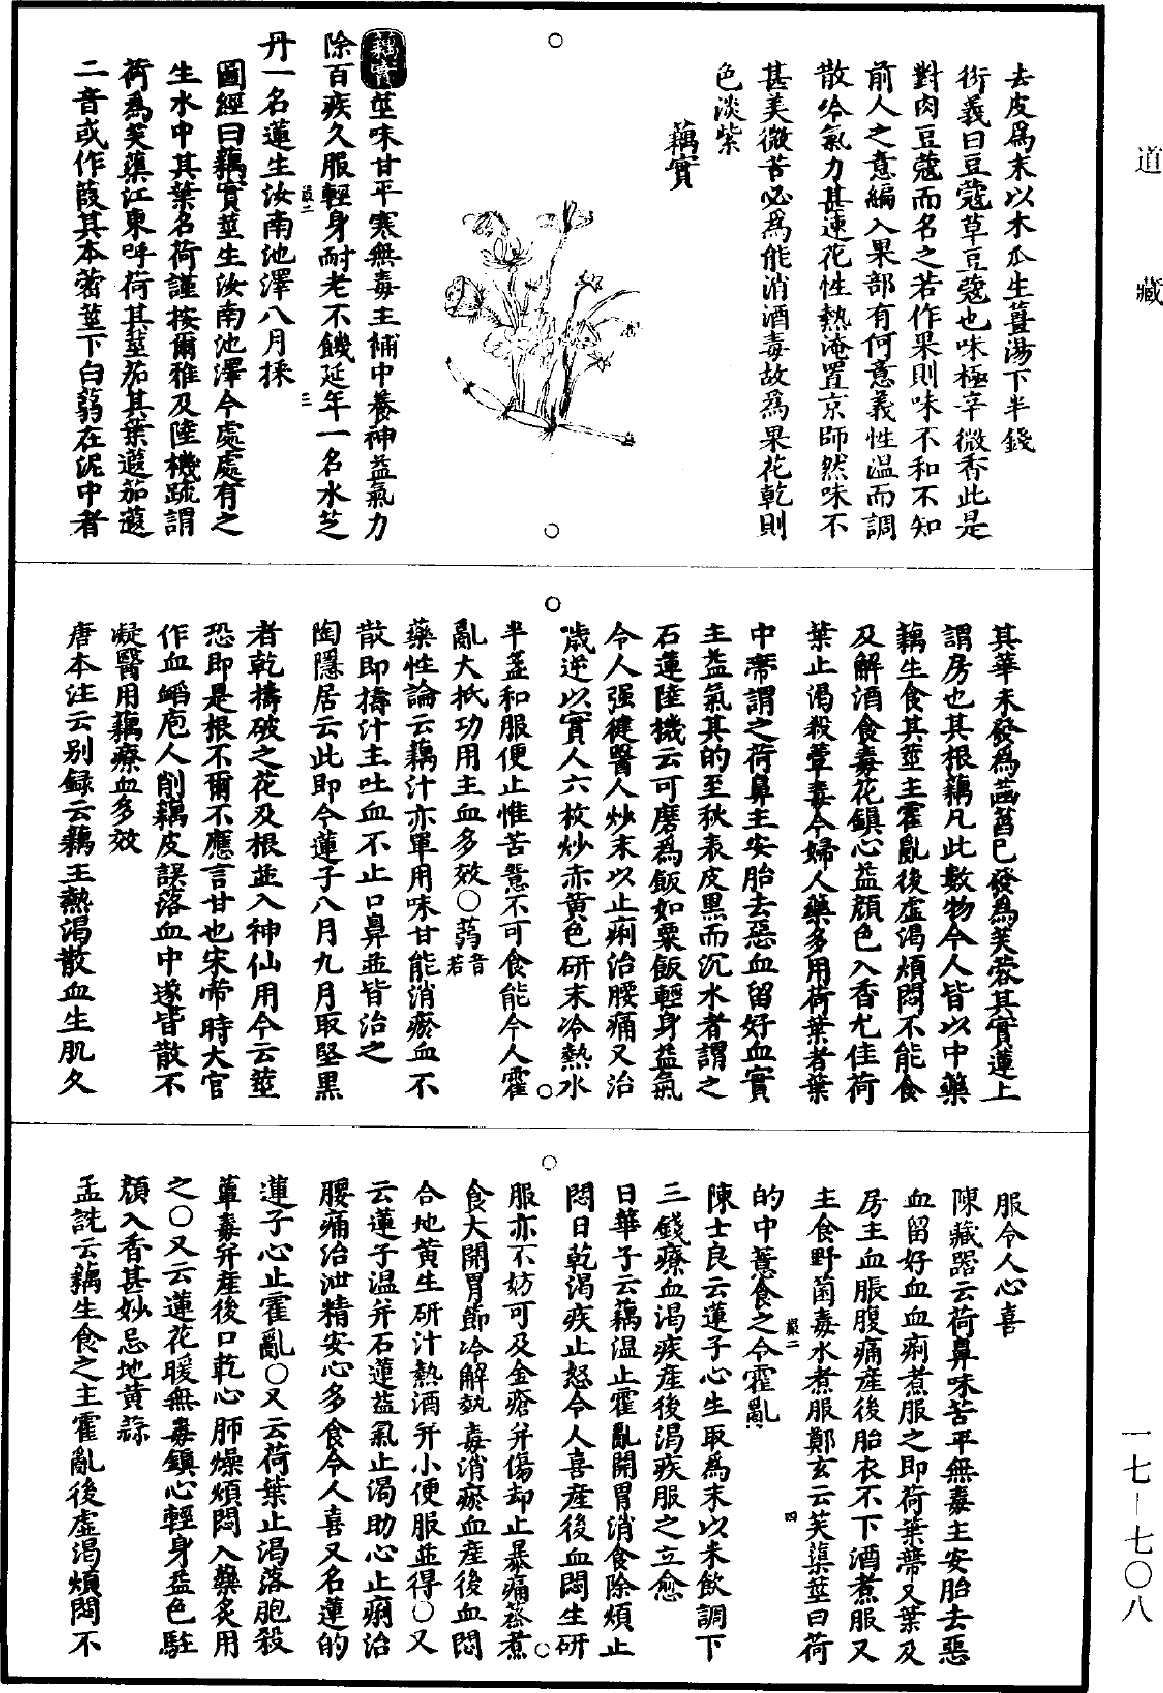 道藏
去皮爲末以木瓜生薑湯下半錢
衍義曰豆蔻草豆蔻也味極辛微香此是
對肉豆蔻而名之若作果則味不和不知
前人之意編入果部有何意義性溫而調
散冷氣力甚速花性熱淹置京師然味不
甚美微苦必爲能消酒毒故爲果花乾則
色淡紫
藕實
藕實莖味甘平寒無毒主補中養神益氣力
除百疾久服輕身耐老不饑延年一名水芝
丹一名蓮生汝南池澤八月採
嶽二
三
圖經曰藕實莖生汝南池澤今處處有之
生水中其葉名荷謹按爾雅及陸機疏謂
荷爲芙蕖江東呼荷其莖茄其葉蕸茄蕸
二音或作葭其本蔤莖下白蒻在泥中者
其華未發爲菡萏已發爲芙蓉其實蓮上
謂房也其根藕凡此數物今人皆以中藥
藕生食其莖主霍亂後虛渴煩悶不能食
及解酒食毒花鎮心益顏色入香尤佳荷
葉止渴殺蕈毒今婦人藥多用荷葉者葉
中蔕謂之荷鼻主安胎去惡血留好血實
主益氣其的至秋表皮黑而沉水者謂之
石蓮陸機云可磨爲飯如粟飯輕身益氣
令人强健醫人炒末以止痢治腰痛又治
噦逆以實人六枚炒赤黃色研末冷熱水
半盞和服便止惟苦薏不可食能令人霍
亂大抵功用主血多效○蒻音若
藥性論云藕汁亦單用味甘能消瘀血不
散即擣汁主吐血不止口鼻並皆治之
陶隱居云此即今蓮子八月九月取堅黑
者乾擣破之花及根並入神仙用今云莖
恐即是根不爾不應言甘也宋帝時大官
作血䘓庖人削藕皮誤落血中遂皆散不
凝醫用藕療血多效
唐本注云别録云藕主熱渴散血生肌久
服令人心喜
陳藏器云荷鼻味苦平無毒主安胎去惡
血留好血血痢煮服之即荷葉蔕又葉及
房主血脹腹痛產後胎衣不下酒煮服又
主食野菌毒水煮服鄭玄云芙蕖莖曰荷
的中薏食之令霍亂
嶽二
四
陳士良云蓮子心生取爲末以米飲調下
三錢療血渴疾產後渴疾服之立愈
日華子云藕温止霍亂開胃消食除煩止
悶日乾渴疾止怒令人喜產後血悶生研
服亦不妨可及金瘡并傷却止暴痛蒸煮
食大開胃節冷解熱毒消瘀血產後血悶
合地黃生研汁熱酒并小便服並得○又
云蓮子温并石蓮益氣止渴助心止痢治
腰痛治泄精安心多食令人喜又名蓮的
蓮子心止霍亂○又云荷葉止渴落胞殺
蕈毒并產後口乾心肺燥煩悶入藥炙用
之○又云蓮花暖無毒鎮心輕身益色駐
顏入香甚妙忌地黃蒜
孟詵云藕生食之主霍亂後虛渴煩悶不
一七—七〇八